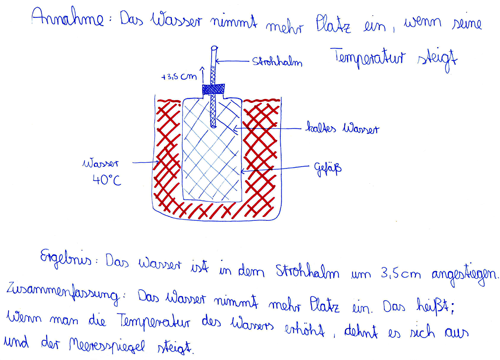 Annahme: Das Wasser nimmt mehr Platz ein, wenn seine
Temperatur steigt
+3,5 cm
Strohhalm
kaltes Wasser
Gefäß
Wasser
40°C
Ergebnis: Das Wasser ist in dem Strohhalm um 3,5 cm angestiegen.
Zusammenfassung: Das Wasser nimmt mehr Platz ein. Das heißt;
Wenn man die Temperatur des Wassers erhöht, dehnt es sich aus
und der Meeresspiegel steigt.